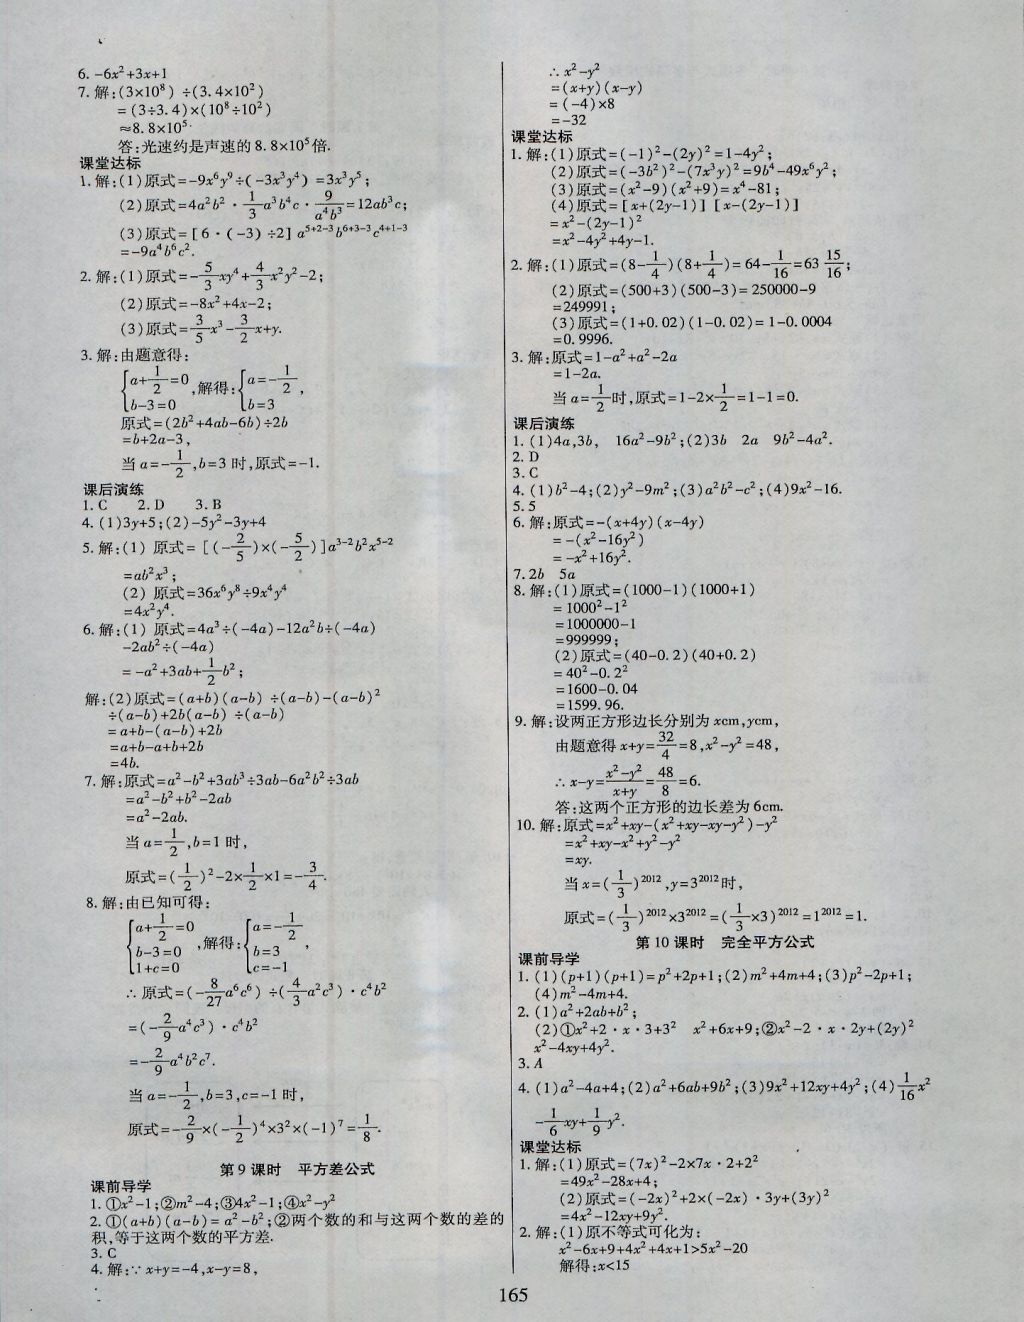 6. -6x²+3x+1
7. 解:(3×10⁸) ÷(3.4×10²)
= (3÷3.4)×(10⁸÷10²)
≈8.8×10⁵.
答:光速约是声速的 8.8×10⁵倍.
课堂达标
1. 解:(1)原式=-9x⁶y⁹÷(-3x³y⁴) =3x³y⁵;
(2)原式=4a²b²·1/3a³b⁴c·9/(a⁴b³)=12ab³c;
(3)原式=[6·(-3)÷2] a⁵⁺²⁻³b⁶⁺³⁻³c⁴⁺¹⁻³
=-9a⁴b⁶c².
2. 解:(1)原式=-5/3xy⁴+4/3x²y²-2;
(2)原式=-8x²+4x-2;
(3)原式=3/5x³-3/2x+y.
3. 解:由题意得:
{a+1/2=0 b-3=0 ,解得:{a=-1/2 b=3 ,
原式=(2b²+4ab-6b)÷2b
=b+2a-3,
当a=-1/2,b=3 时,原式=-1.
课后演练
1. C 2. D 3. B
4. (1)3y+5;(2)-5y²-3y+4
5. 解:(1) 原式= [(-2/5)×(-5/2)]a³⁻²b²x⁵⁻²
=ab²x³;
(2) 原式=36x⁶y⁸÷9x⁴y⁴
=4x²y⁴.
6. 解:(1) 原式=4a³÷(-4a)-12a²b÷(-4a)
-2ab²÷(-4a)
= -a²+3ab+1/2b²;
解:(2)原式=(a+b)(a-b) ÷(a-b)-(a-b)²
÷(a-b)+2b(a-b) ÷(a-b)
= a+b-(a-b)+2b
=a+b-a+b+2b
=4b.
7. 解:原式=a²-b²+3ab³÷3ab-6a²b²÷3ab
=a²-b²+b²-2ab
=a²-2ab.
当a=1/2,b=1 时,
原式=(1/2)²-2×1/2×1=-3/4.
8. 解:由已知可得:
{a+1/2=0 b-3=0 1+c=0 ,解得:{a=-1/2 b=3 c=-1 ,
∴原式=(-8/27a⁶c⁶) ÷(4/3a²c³)·c⁴b²
=(-2/9a⁴c³)·c⁴b²
=-2/9a⁴b²c⁷.
当a=-1/2,b=3,c=-1 时,
原式=-2/9×(-1/2)⁴×3²×(-1)⁷=1/8.
第 9 课时 平方差公式
课前导学
1. ①x²-1;②m²-4;③4x²-1;④x²-y²
2. ①(a+b)(a-b)= a²-b²;②两个数的和与这两个数的差的
积,等于这两个数的平方差.
3. C
4. 解:∵x+y=-4,x-y=8,
∴x²-y²
=(x+y)(x-y)
= (-4)×8
=-32
课堂达标
1. 解:(1)原式=(-1)²-(2y)²=1-4y²;
(2)原式=(-3b²)²-(7x³y)²=9b⁴-49x⁶y²;
(3)原式=(x²-9)(x²+9)=x⁴-81;
(4)原式=[x+(2y-1)] [x-(2y-1)]
=x²-(2y-1)²
=x²-4y²+4y-1.
2. 解:(1)原式=(8-1/4)(8+1/4)=64-1/16=63 15/16;
(2)原式=(500+3)(500-3)=250000-9
=249991;
(3)原式=(1+0.02)(1-0.02)=1-0.0004
=0.9996.
3. 解:原式=1-a²+a²-2a
=1-2a.
当a=1/2时,原式=1-2×1/2=1-1=0.
课后演练
1. (1)4a,3b, 16a²-9b²;(2)3b 2a 9b²-4a².
2. D
3. C
4. (1)b²-4;(2)y²-9m²;(3)a²b²-c²;(4)9x²-16.
5. 5
6. 解:原式=-(x+4y)(x-4y)
= -(x²-16y²)
= -x²+16y².
7. 2b 5a
8. 解:(1)原式=(1000-1)(1000+1)
= 1000²-1²
=1000000-1
=999999;
(2)原式=(40-0.2)(40+0.2)
=40²-0.2²
=1600-0.04
=1599.96.
9. 解:设两正方形边长分别为 xcm,ycm,
由题意得x+y=32/4=8,x²-y²=48,
∴x-y=(x²-y²)/(x+y)=48/8=6.
答:这两个正方形的边长差为6cm.
10. 解:原式=x²+xy-(x²+xy-xy-y²)-y²
=x²+xy-x²+y²-y²
=xy.
当x=(1/3)²⁰¹²,y=3²⁰¹²时,
原式=(1/3)²⁰¹²×3²⁰¹²=(1/3×3)²⁰¹²=1²⁰¹²=1.
第 10 课时 完全平方公式
课前导学
1. (1)(p+1)(p+1)=p²+2p+1;(2)m²+4m+4;(3)p²-2p+1;
(4)m²-4m+4.
2. (1)a²+2ab+b²;
(2)①x²+2·x·3+3² x²+6x+9;②x²-2·x·2y+(2y)²
x²-4xy+4y².
3. A
4. (1)a²-4a+4;(2)a²+6ab+9b²;(3)9x²+12xy+4y²;(4)1/16x²
-1/6xy+1/9y².
课堂达标
1. 解:(1)原式=(7x)²-2×7x·2+2²
=49x²-28x+4;
(2)原式=(-2x)²+2×(-2x)·3y+(3y)²
=4x²-12xy+9y².
2. 解:(1)原不等式可化为:
x²-6x+9+4x²+4x+1>5x²-20
解得:x<15
165